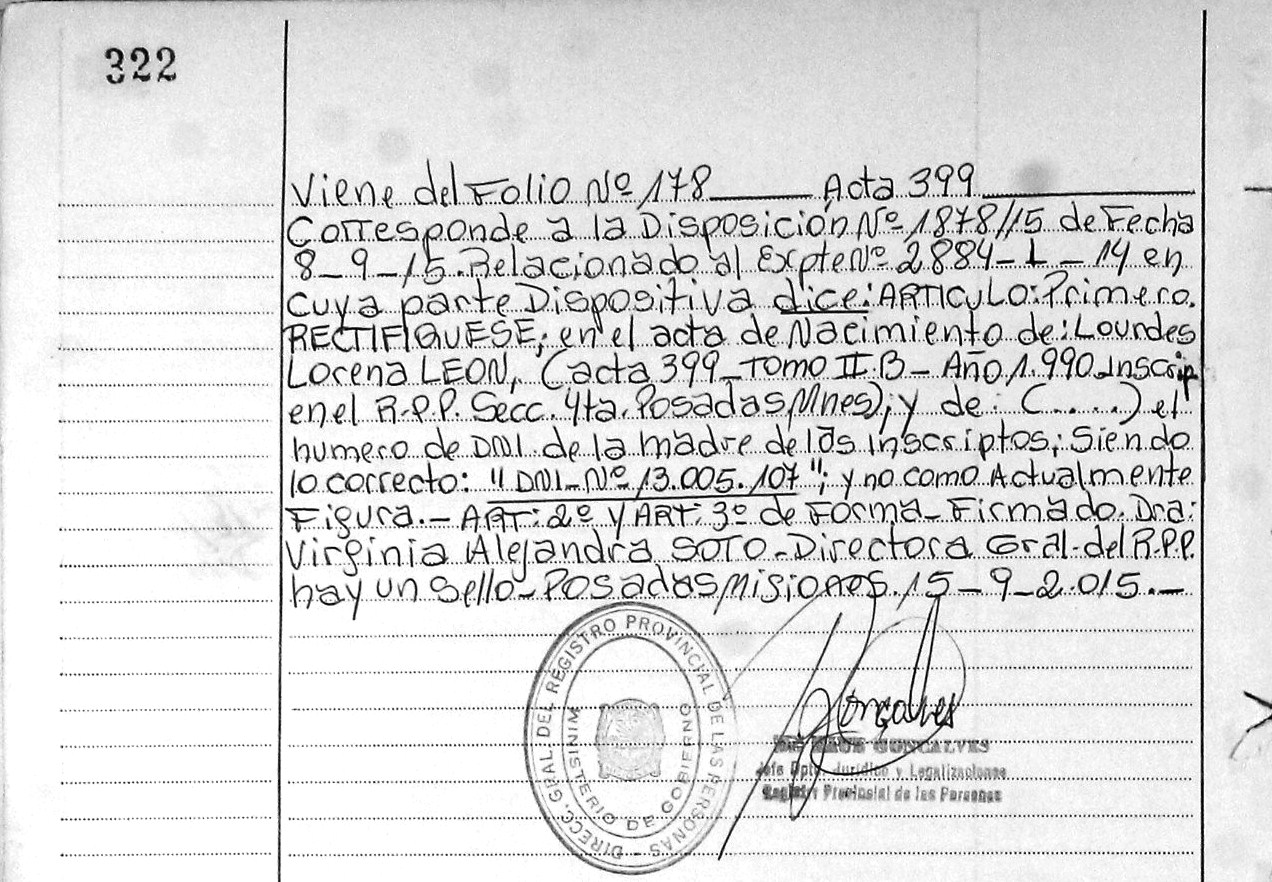 322
Viene del Folio Nº 178 Acta 399
Corresponde a la Disposición Nº 1878/15 de Fecha
8_9_15. Relacionado al Expte Nº 2884-L-14 en
cuya parte Dispositiva dice: ARTICULO: Primero.
RECTIFIQUESE; en el acta de Nacimiento de: Lourdes
Lorena LEON, (acta 399_TOMO II.B_ Año 1.990 Inscrip
en el R.P.P. Secc. 4ta. Posadas Mnes); y de: (.....) el
numero de DNI. de la madre de los inscriptos; Siendo
lo correcto: "DNI_Nº 13.005.107"; y no como Actualmente
Figura._ ART: 2º y ART: 3º de Forma_ Firmado. Dra:
Virginia Alejandra SOTO_Directora Gral. del R.P.P.
hay un Sello_ Posadas Misiones. 15_9_2.015._
DIRECC. GRAL. DEL REGISTRO PROVINCIAL DE LAS PERSONAS
MINISTERIO DE GOBIERNO
Gonçalves
GONCALVES
Jefe Dpto. Jurídico y Legalizaciones
Registro Provincial de las Personas